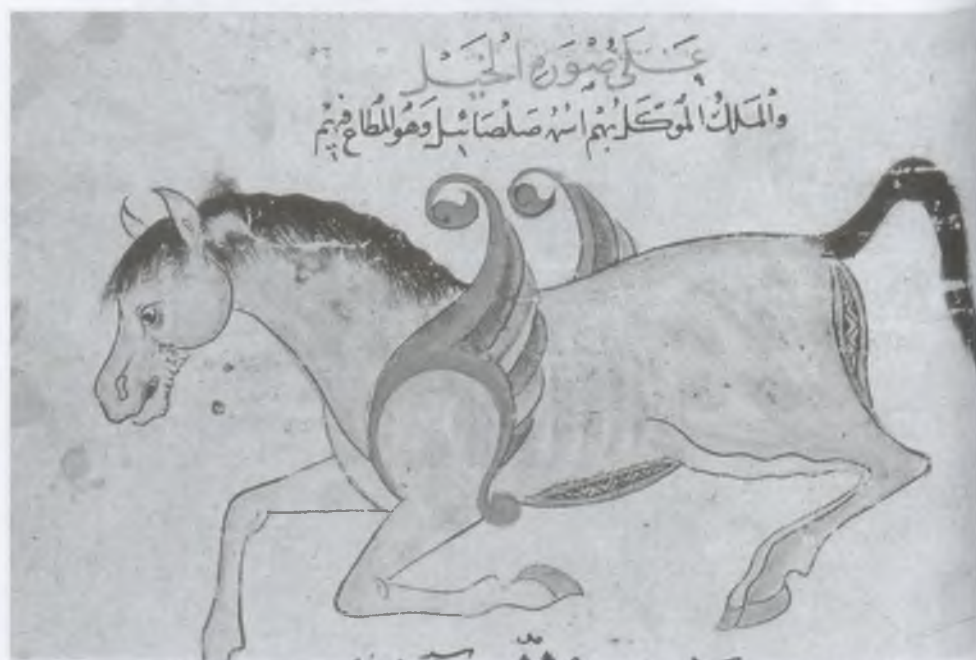 عَلَى صُورَةِ الْخَيْل
وَالْمَلَكُ الْمُوَكَّلُ بِهِمْ اسْمُهُ صَلْصَائِيل وَهُوَ الْمُطَاع فِيهِمْ